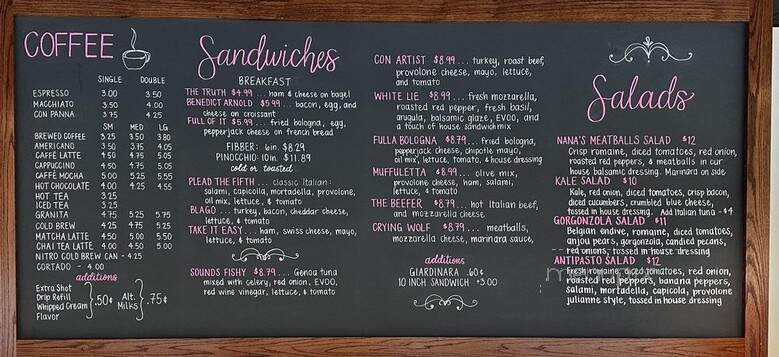 COFFEE
SINGLE DOUBLE
ESPRESSO 3.00 3.50
MACCHIATO 3.50 4.00
CON PANNA 3.75 4.25
SM MED LG
BREWED COFFEE 3.25 3.50 3.80
AMERICANO 3.50 3.75 4.05
CAFFÈ LATTE 4.50 4.75 5.05
CAPPUCCINO 4.50 4.75 5.05
CAFFÈ MOCHA 5.00 5.25 5.55
HOT CHOCOLATE 4.00 4.25 4.55
HOT TEA 3.25
ICED TEA 3.25
GRANITA 4.75 5.25 5.75
COLD BREW 4.25 4.75 5.25
MATCHA LATTE 4.50 5.00 5.50
CHAI TEA LATTE 4.00 4.50 5.00
NITRO COLD BREW CAN - 4.25
CORTADO - 4.00
additions
Extra Shot
Drip Refill
Whipped Cream
Flavor
.50¢
Alt.
Milks
.75¢
Sandwiches
BREAKFAST
THE TRUTH $4.99 ... ham & cheese on bagel
BENEDICT ARNOLD $5.99 ... bacon, egg, and
cheese on croissant
FULL OF IT $5.99 ... fried bologna, egg,
pepperjack cheese on french bread
FIBBER: 6in. $8.29
PINOCCHIO: 10in. $11.89
cold or toasted
PLEAD THE FIFTH ... classic Italian:
salami, capicolla, mortadella, provolone,
oil mix, lettuce, & tomato
BLAGO ... turkey, bacon, cheddar cheese,
lettuce, & tomato
TAKE IT EASY ... ham, swiss cheese, mayo,
lettuce, & tomato
SOUNDS FISHY $8.79 ... Genoa tuna
mixed with celery, red onion, EVOO,
red wine vinegar, lettuce, & tomato
CON ARTIST $8.99 ... turkey, roast beef,
provolone cheese, mayo, lettuce,
and tomato
WHITE LIE $8.99 ... fresh mozzarella,
roasted red pepper, fresh basil,
arugula, balsamic glaze, EVOO, and
a touch of house sandwich mix
FULLA BOLOGNA $8.79 ... fried bologna,
pepperjack cheese, chipotle mayo,
oil mix, lettuce, tomato, & house dressing
MUFFULETTA $8.99 ... olive mix,
provolone cheese, ham, salami,
lettuce, & tomato
THE BEEFER $8.79 ... hot Italian beef,
and mozzarella cheese
CRYING WOLF $8.79 ... meatballs,
mozzarella cheese, marinara sauce,
additions
GIARDINARA .60¢
10 INCH SANDWICH +3.00
Salads
NANA'S MEATBALLS SALAD $12
Crisp romaine, diced tomatoes, red onion,
roasted red peppers, & meatballs in our
house balsamic dressing. Marinara on side
KALE SALAD $10
Kale, red onion, diced tomatoes, crisp bacon,
diced cucumbers, crumbled blue cheese,
tossed in house dressing. Add Italian tuna - $4
GORGONZOLA SALAD $11
Belgian endive, romaine, diced tomatoes,
anjou pears, gorgonzola, candied pecans,
red onions, tossed in house dressing
ANTIPASTO SALAD $12
tomatoes, red onion,
roasted red peppers, banana peppers,
salami, mortadella, capicola, provolone
julianne style, tossed in house dressing